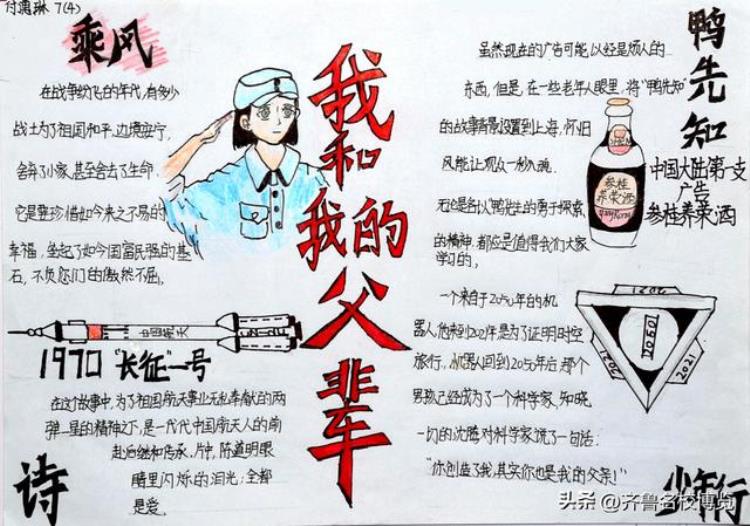 付 琳 7(4)
乘风
在战争纷飞的年代,有多少
战士为了祖国和平,边境安宁,
舍弃了小家,甚至舍去了生命.
它是要珍惜如今来之不易的
幸福,垒起了如今国富民强的基
石,不负您们的傲然不屈.
我和我的父辈
鸭先知
虽然现在的广告可能以经是烦人的
东西,但是,在一些老年人眼里,将“鸭先知”
的故事背景设置到上海,怀旧
风能让观众一秒入魂.
无论是各以鸭先生的勇于探索
的精神,都应是值得我们大家
学习的.
参桂
养荣酒
中国大陆第一支
广告
参桂养荣酒
中国航天
1970“长征”一号
在这故事中,为了祖国航天事业无私奉献的两
弹一星的精神之下,是一代代中国航天人的前
赴后继和传承,片中,陈道明眼
睛里闪烁的泪光:全都
是爱.
诗
一个来自于2050年的机
器人,他来到2021年是为了证明时空
旅行,机器人回到2050年后,那个
男孩已经成为了一个科学家,知晓
一切的沈腾对科学家说了一句话:
“你创造了我,其实你也是我的父亲!”
2021
2050
2021
少年行
头条 @齐鲁名校博览